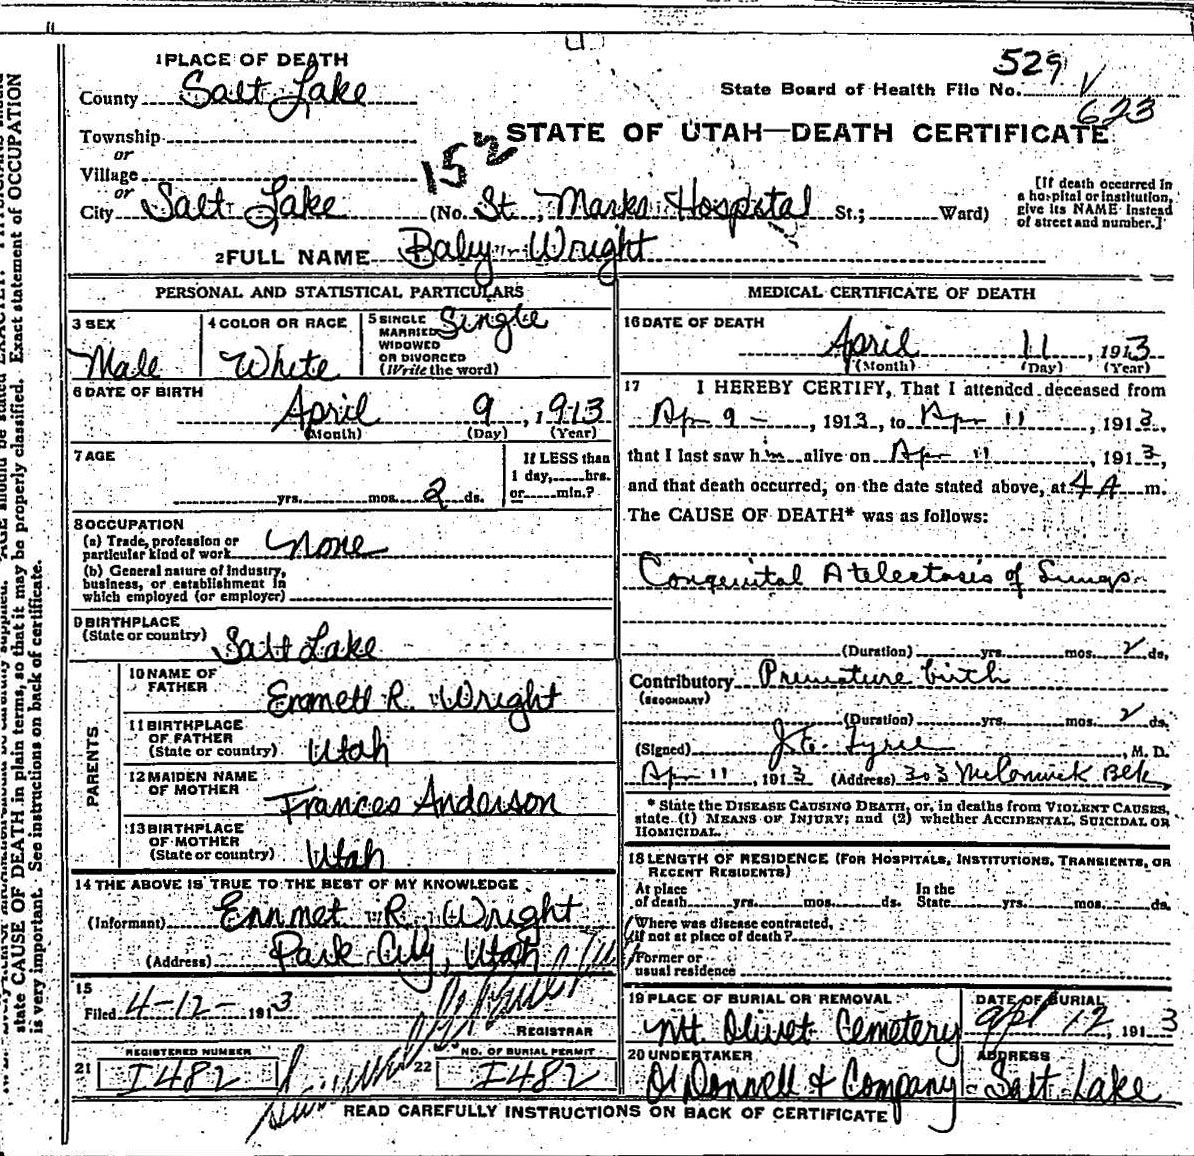 529
State Board of Health File No.
623
1 PLACE OF DEATH
County Salt Lake
Township
or
Village
or
152
STATE OF UTAH—DEATH CERTIFICATE
City Salt Lake (No. St, Marks Hospital St.; Ward)
[If death occurred in
a hospital or institution,
give its NAME instead
of street and number.]
2 FULL NAME Baby Wright
PERSONAL AND STATISTICAL PARTICULARS
3 SEX
Male
4 COLOR OR RACE
White
5 SINGLE
MARRIED
WIDOWED
OR DIVORCED
(Write the word)
Single
6 DATE OF BIRTH
April 9, 1913
(Month) (Day) (Year)
7 AGE
yrs. mos. 2 ds.
If LESS than
1 day, hrs.
or min.?
8 OCCUPATION
(a) Trade, profession or
particular kind of work None
(b) General nature of industry,
business, or establishment in
which employed (or employer)
9 BIRTHPLACE
(State or country) Salt Lake
PARENTS
10 NAME OF
FATHER
Emmett R. Wright
11 BIRTHPLACE
OF FATHER
(State or country) Utah
12 MAIDEN NAME
OF MOTHER
Frances Anderson
13 BIRTHPLACE
OF MOTHER
(State or country) Utah
14 THE ABOVE IS TRUE TO THE BEST OF MY KNOWLEDGE
(Informant) Emmet R. Wright
(Address) Park City, Utah
15
Filed 4-12- 1913
REGISTRAR
21 REGISTERED NUMBER
I482
22 NO. OF BURIAL PERMIT
I482
MEDICAL CERTIFICATE OF DEATH
16 DATE OF DEATH
April 11, 1913
(Month) (Day) (Year)
17 I HEREBY CERTIFY, That I attended deceased from
Apr 9 -, 1913, to Apr 11, 1913,
that I last saw him alive on Apr 11, 1913,
and that death occurred, on the date stated above, at 4 A m.
The CAUSE OF DEATH* was as follows:
Congenital Atelectasis of Lungs
(Duration) yrs. mos. 2 ds.
Contributory Premature birth
(SECONDARY)
(Duration) yrs. mos. 2 ds.
(Signed) J. E. Tyree, M. D.
Apr 11, 1913 (Address) 303 McCornick Blk
* State the DISEASE CAUSING DEATH, or, in deaths from VIOLENT CAUSES,
state (1) MEANS OF INJURY; and (2) whether ACCIDENTAL, SUICIDAL OR
HOMICIDAL.
18 LENGTH OF RESIDENCE (FOR HOSPITALS, INSTITUTIONS, TRANSIENTS, OR
RECENT RESIDENTS)
At place
of death yrs. mos. ds.
In the
State yrs. mos. ds.
Where was disease contracted,
if not at place of death?
Former or
usual residence
19 PLACE OF BURIAL OR REMOVAL
Mt. Olivet Cemetery
DATE OF BURIAL
Apl 12, 1913
20 UNDERTAKER
O'Donnell & Company
ADDRESS
Salt Lake
READ CAREFULLY INSTRUCTIONS ON BACK OF CERTIFICATE
AGE should be stated EXACTLY.
state CAUSE OF DEATH in plain terms, so that it may be properly classified. Exact statement of OCCUPATION
is very important. See instructions on back of certificate.